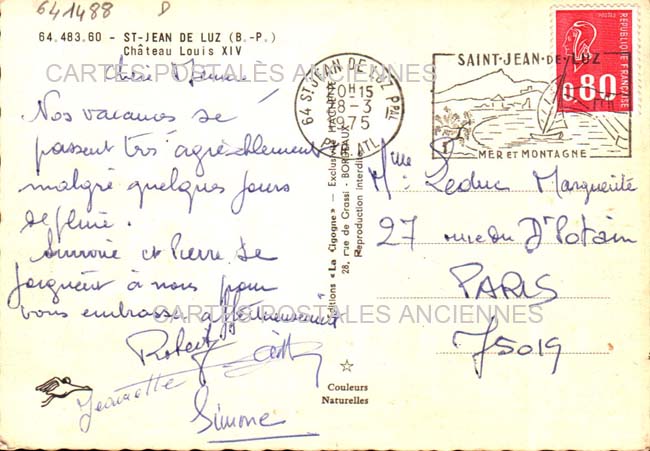 641488
64.483.60 - ST-JEAN DE LUZ (B.-P.)
Château Louis XIV
CARTES POSTALES ANCIENNES
Nos vacances se
passent très agréablement
malgré quelques jours
de pluie.
et Pierre se
joignent à nous pour
vous embrasser affectueusement
CARTES POSTALES ANCIENNES
Robert
Jeannette
Simone
Éditions « La Cigogne » — Exclusivité HACHETTE
28, rue de Grassi - BORDEAUX
Reproduction interdite
Couleurs
Naturelles
64 ST JEAN DE LUZ PPAL
10H15
8-3
1975
PYR. ATL.
SAINT-JEAN-DE-LUZ
MER ET MONTAGNE
0,80
REPUBLIQUE FRANÇAISE
Mlle Leduc Marguerite
27 rue du Dr Potain
PARIS
75019